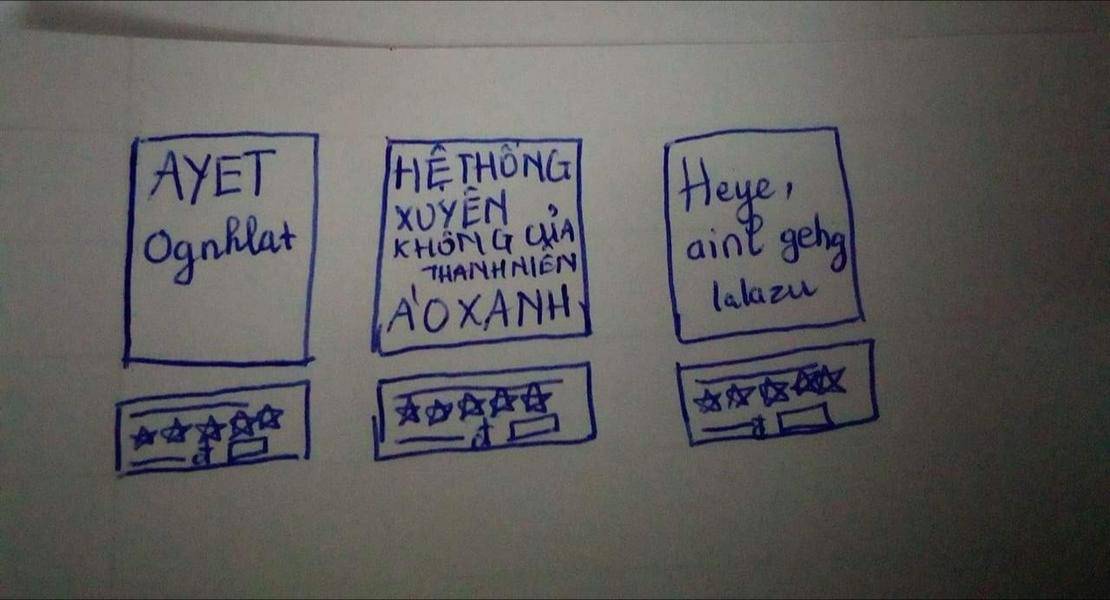 AYET
Ognhlat
đ
HỆ THỐNG
XUYÊN
KHÔNG CỦA
THANH NIÊN
ÁO XANH
đ
Heye,
aint gehg
lalazu
đ